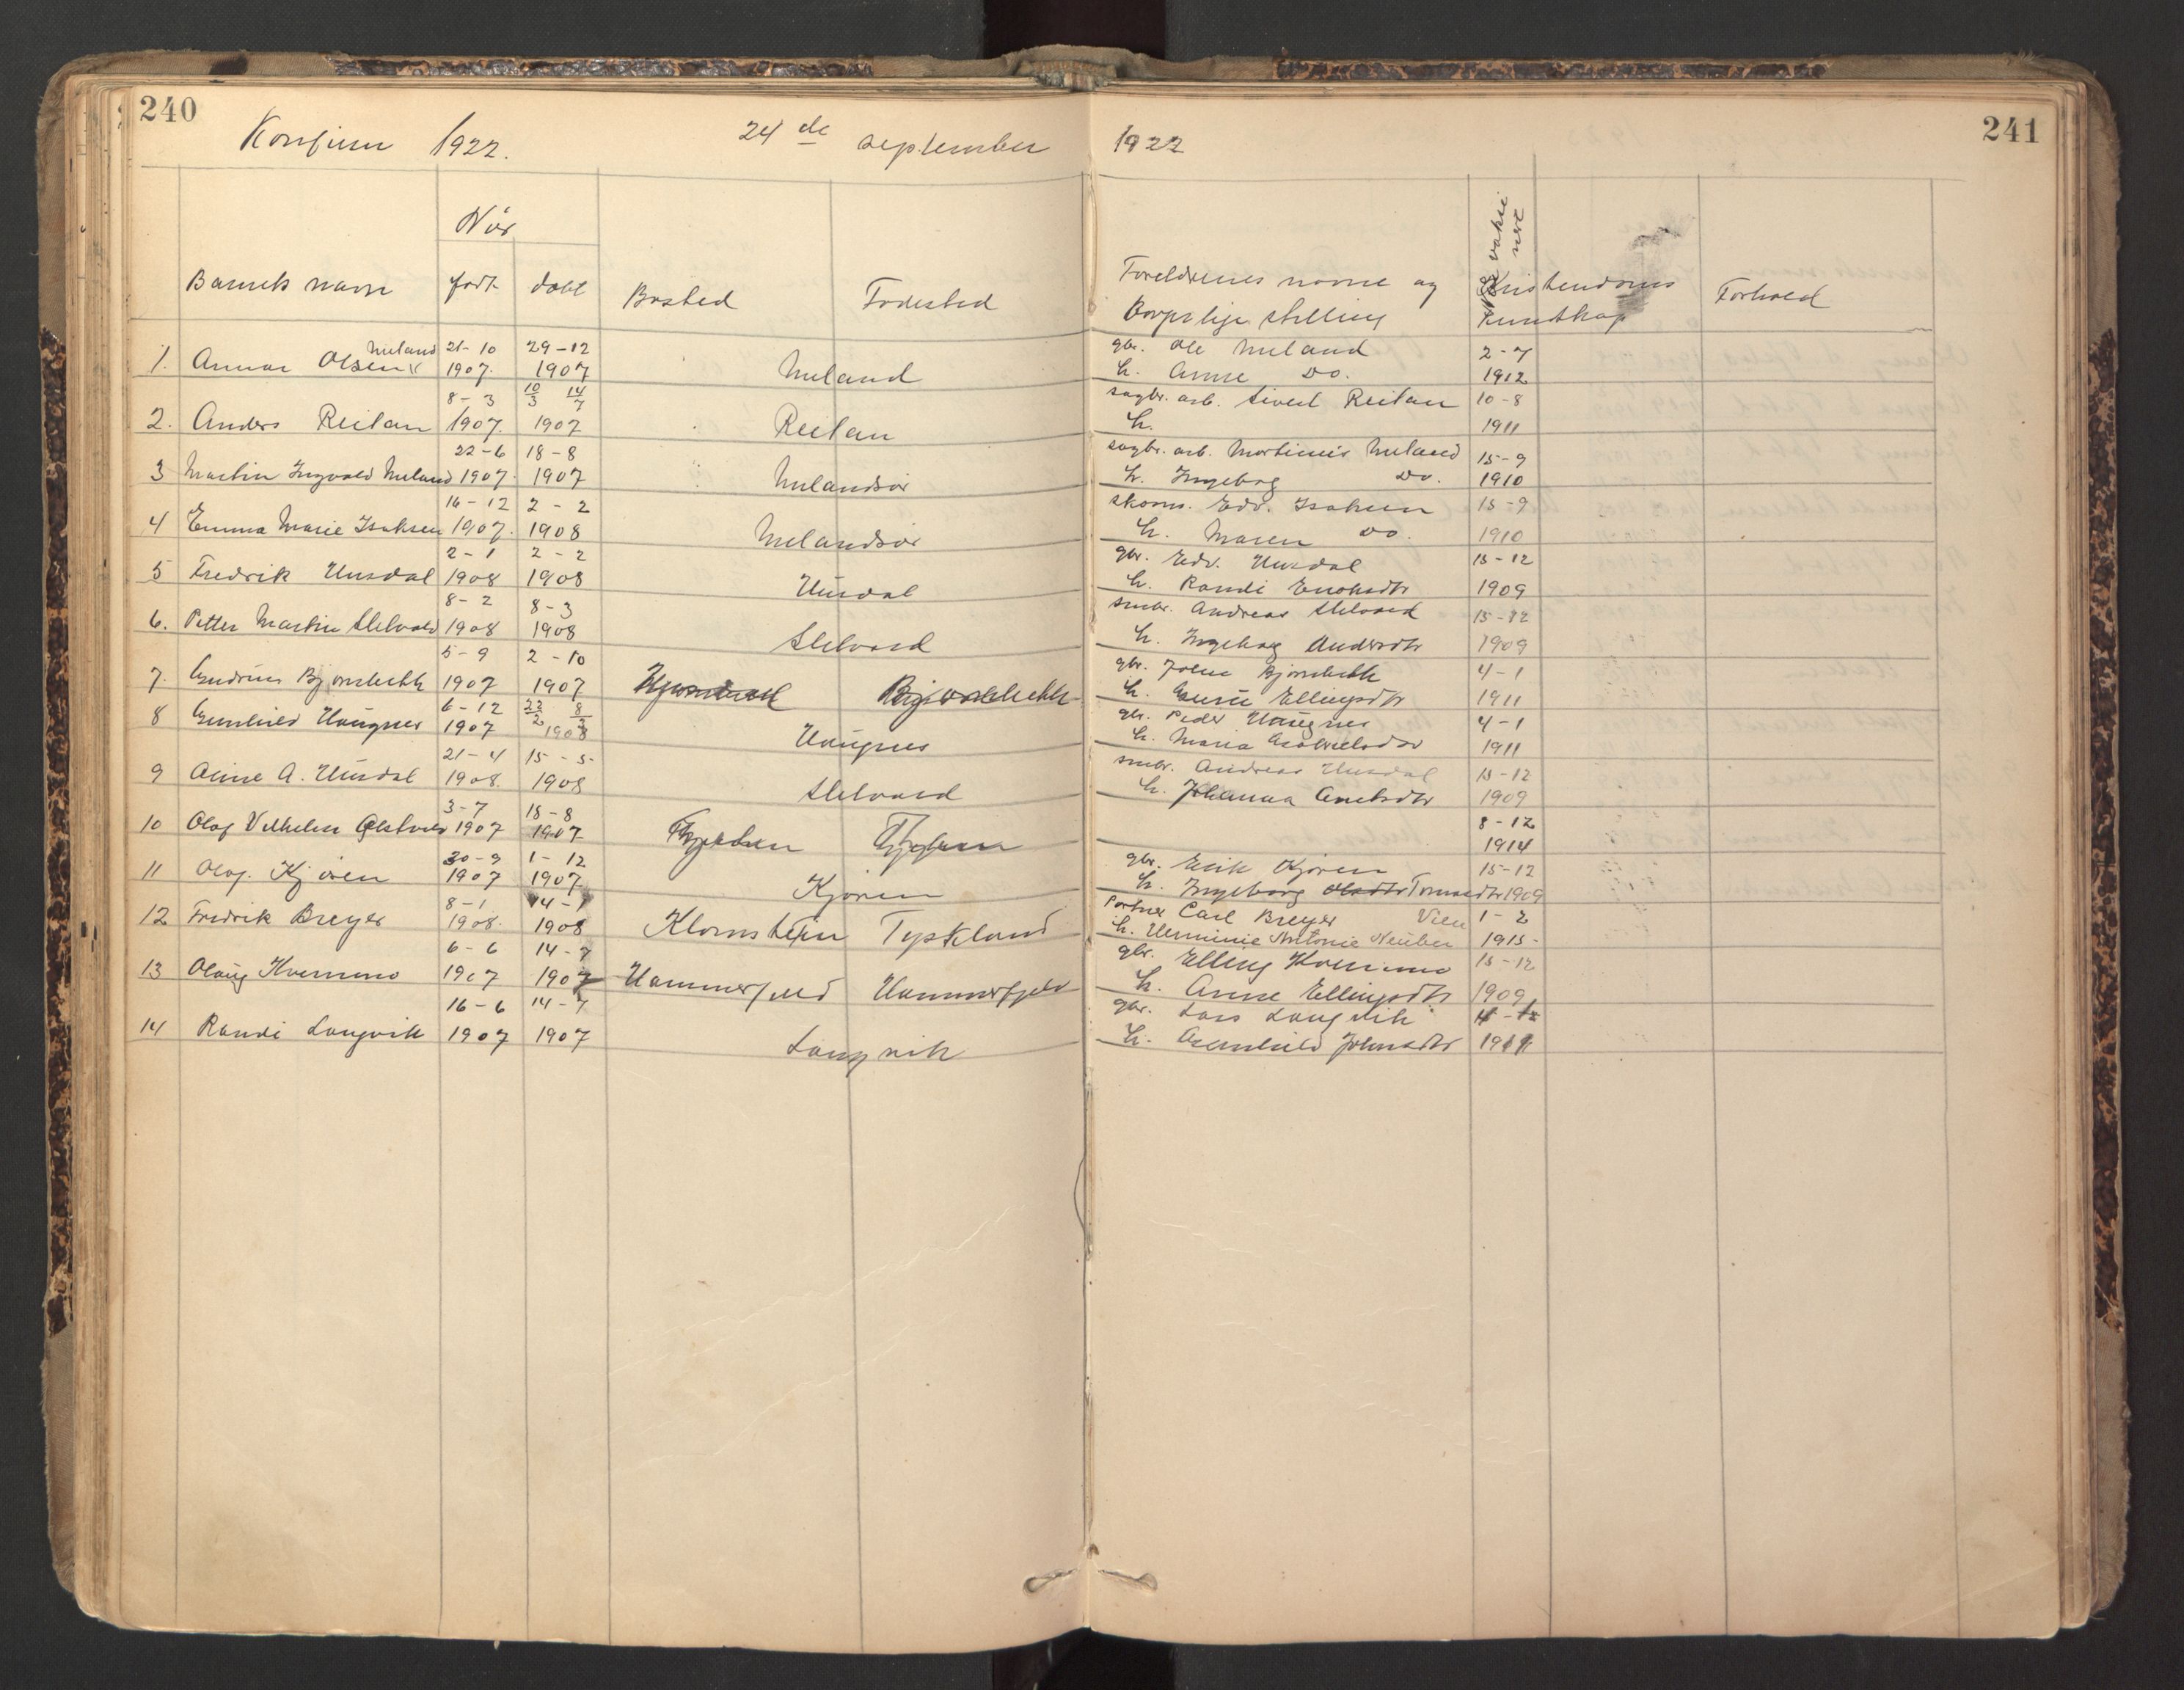 240
Konfirm 1922.
24 de september
1922
241
Når
Barnets navn
født
døbt
Bosted
Fødested
Foreldrenes navne og
borgerlige stilling
Når vaksinert
Kristendoms
kunskap
Forhold
1. Annar Olsen Meland 21-10 1907. 29-12 1907 Meland gbr. Ole Meland h. Anne Do. 2-7 1912
2. Anders Reitan 8-3 1907. 10/3 14/7 1907 Reitan sagbr. arb. Sivert Reitan h. 10-8 1911
3 Martin Ingvald Meland 22-6 1907 18-8 1907 Melandsør sagbr. arb. Mortinus Meland h. Ingeborg Do. 15-9 1910
4 Emma Marie Isaksen 16-12 1907. 2-2 1908 Melandsør skom. Edv. Isaksen h. Maren Do. 15-9 1910
5 Fredrik Unsdal 2-1 1908 2-2 1908 Unsdal gbr. Edv. Unsdal h. Randi Enoksdtr 15-12 1909
6. Petter Martin Stelvold 8-2 1908 8-3 1908 smbr. Andreas h. Ingeborg Andersdtr 15-12 1909
7. Gudrun 5-9 1907 2-10 1907 gbr. John h. Guru Ellingsdtr 4-1 1911
8 Gunhild Haugnes 6-12 1907 22/2 8/3 1908 Haugnes gbr. Peder Haugnes h. Maria 4-1 1911
9 Anne A. Unsdal 21-4 1908. 15-5- 1908 smbr. Andreas Unsdal h. Johanna 15-12 1909
10 Olaf Vilhelm 3-7 1907 18-8 1907 8-12 1914
11 Olaf. Kjøren 30-9 1907 1-12 1907 Kjøren gbr. Erik Kjøren h. Ingeborg Olsdtr 15-12 1909
12 Fredrik Breyer 8-1 1908. 14-1 1908 Tyskland Portner Carl Breyer Vien h. Herminie Antonie Neuber 1-2 1915-
13 Olaug Kvernmo 6-6 1907 14-7 1907 Hammerfjeld Hammerfjeld gbr. Elling Kvernmo h. Anne Ellingsdtr 15-12 1909
14 Randi Langvik 16-6 1907 14-7 1907 Langvik gbr. Lars Langvik h. Gunhild Johnsdtr